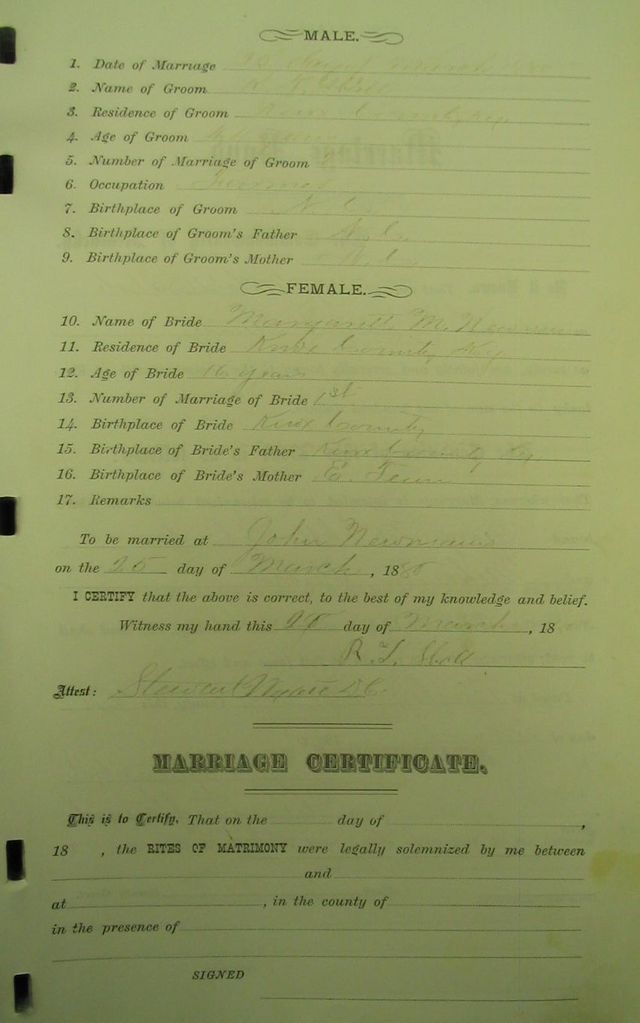 MALE.
1. Date of Marriage 25 March
2. Name of Groom R
3. Residence of Groom Knox County, Ky
4. Age of Groom
5. Number of Marriage of Groom
6. Occupation Farmer
7. Birthplace of Groom N. C.
8. Birthplace of Groom's Father N. C.
9. Birthplace of Groom's Mother N. C.
FEMALE.
10. Name of Bride M. Newman
11. Residence of Bride Knox County Ky
12. Age of Bride 16 years
13. Number of Marriage of Bride 1st
14. Birthplace of Bride Knox County
15. Birthplace of Bride's Father Knox County Ky
16. Birthplace of Bride's Mother Ea Tenn
17. Remarks
To be married at John Newman's
on the 25 day of March, 188
I CERTIFY that the above is correct, to the best of my knowledge and belief.
Witness my hand this day of March, 18
R.
Attest: Stewart
MARRIAGE CERTIFICATE.
This is to Certify, That on the day of ,
18 , the RITES OF MATRIMONY were legally solemnized by me between
and
at , in the county of
in the presence of
SIGNED